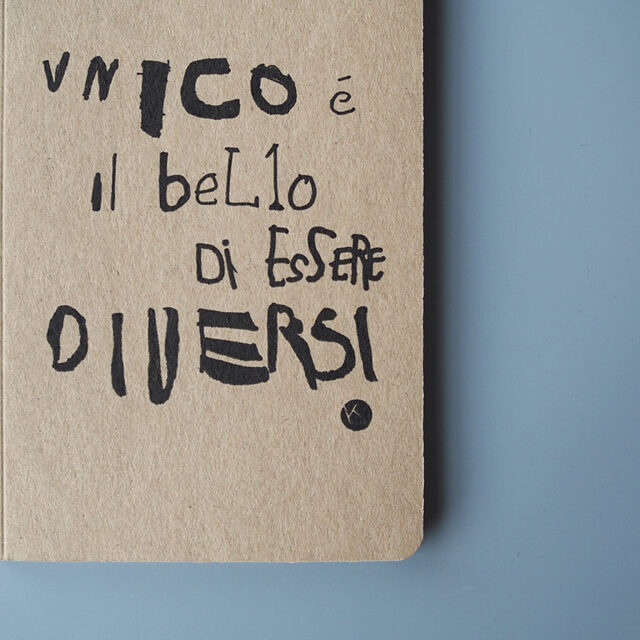 VNICO é
il beLlo
Di EsSERE
DIVERSI